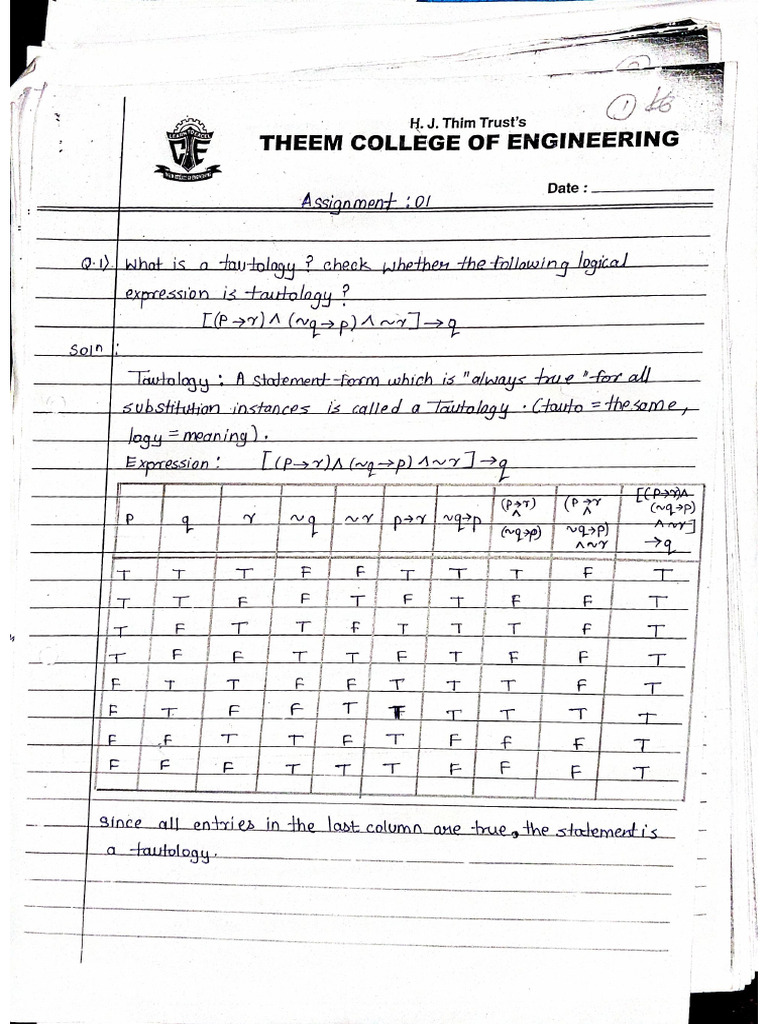 1
H. J. Thim Trust's
THEEM COLLEGE OF ENGINEERING
Date :
Assignment : 01
Q.1) What is a tautology ? check whether the following logical
expression is tautology ?
[(P→r) ∧ (~q→p) ∧ ~r] → q
Solⁿ :
Tautology : A statement form which is "always true" for all
substitution instances is called a Tautology . (tauto = the same ,
logy = meaning) .
Expression : [(P→r) ∧ (~q→p) ∧ ~r] → q
P q r ~q ~r p→r ~q→p (p→r) ∧ (~q→p) (P→r ∧ ~q→p) ∧~r [(P→r)∧ (~q→p) ∧~r] →q
T T T F F T T T F T
T T F F T F T F F T
T F T T f T T T f T
T F F T T F T F F T
F T T F F T T T f T
F T F F T T T T T T
F f T T F T F f f T
F F F T T T F F F T
Since all entries in the last column are true, the statement is
a tautology.